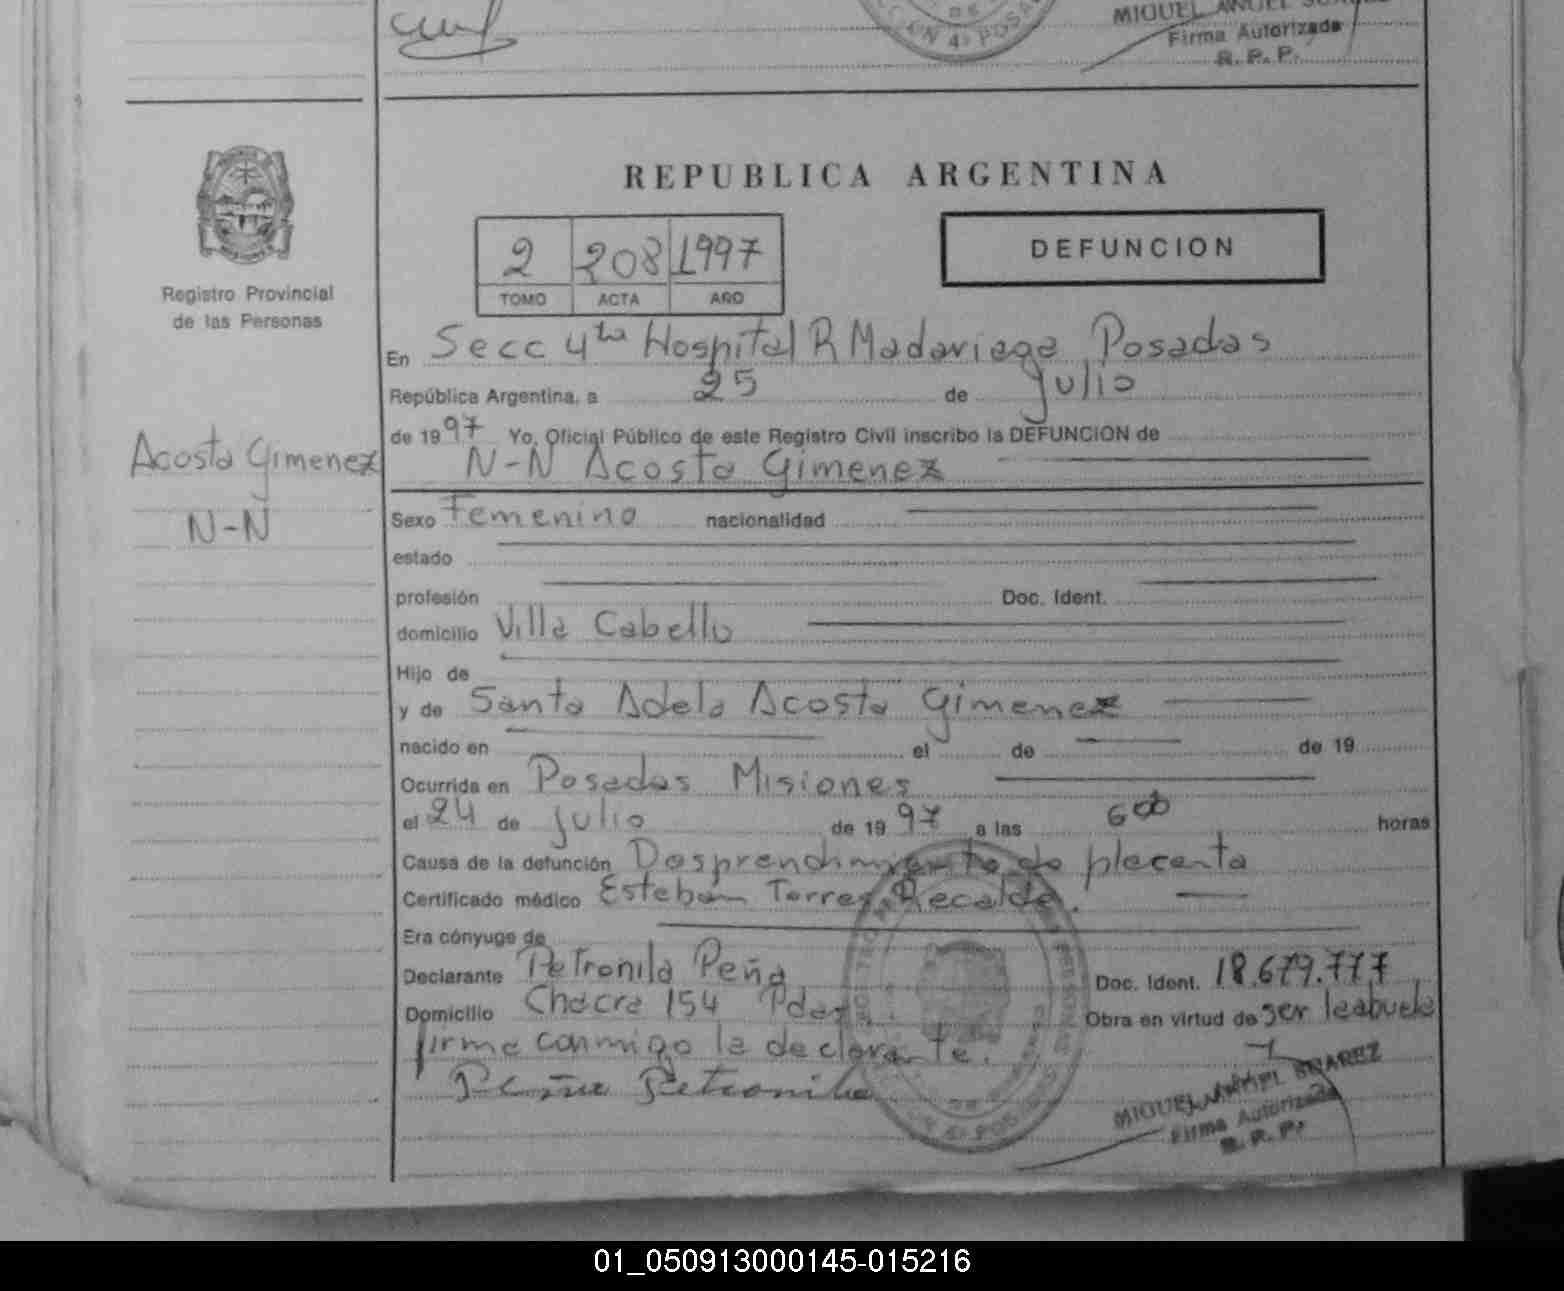 MIGUEL ANGEL SUAREZ
Firma Autorizada
R. P. P.
CION 4ª POSA
REPUBLICA ARGENTINA
2 208 1997
TOMO ACTA AÑO
DEFUNCION
Registro Provincial
de las Personas
En Secc 4ta Hospital R Madariaga Posadas
República Argentina, a 25 de Julio
de 1997 Yo, Oficial Público de este Registro Civil inscribo la DEFUNCION de
N-N Acosta Gimenez
Acosta Gimenez
N-N
Sexo Femenino nacionalidad
estado
profesión Doc. Ident.
domicilio Villa Cabello
Hijo de
y de Santa Adela Acosta Gimenez
nacido en el de de 19
Ocurrida en Posadas Misiones
el 24 de Julio de 1997 a las 6 00 horas
Causa de la defunción Desprendimiento de placenta
Certificado médico Esteban Torres Recalde.
Era cónyuge de
Declarante Petronila Peña Doc. Ident. 18.679.777
Domicilio Chacra 154 Pdas. Obra en virtud de ser la abuela
firma conmigo la declarante.
Peña Petronila
MIGUEL ANGEL SUAREZ
Firma Autorizada
R. P. P.
4ª POSADAS
01_050913000145-015216